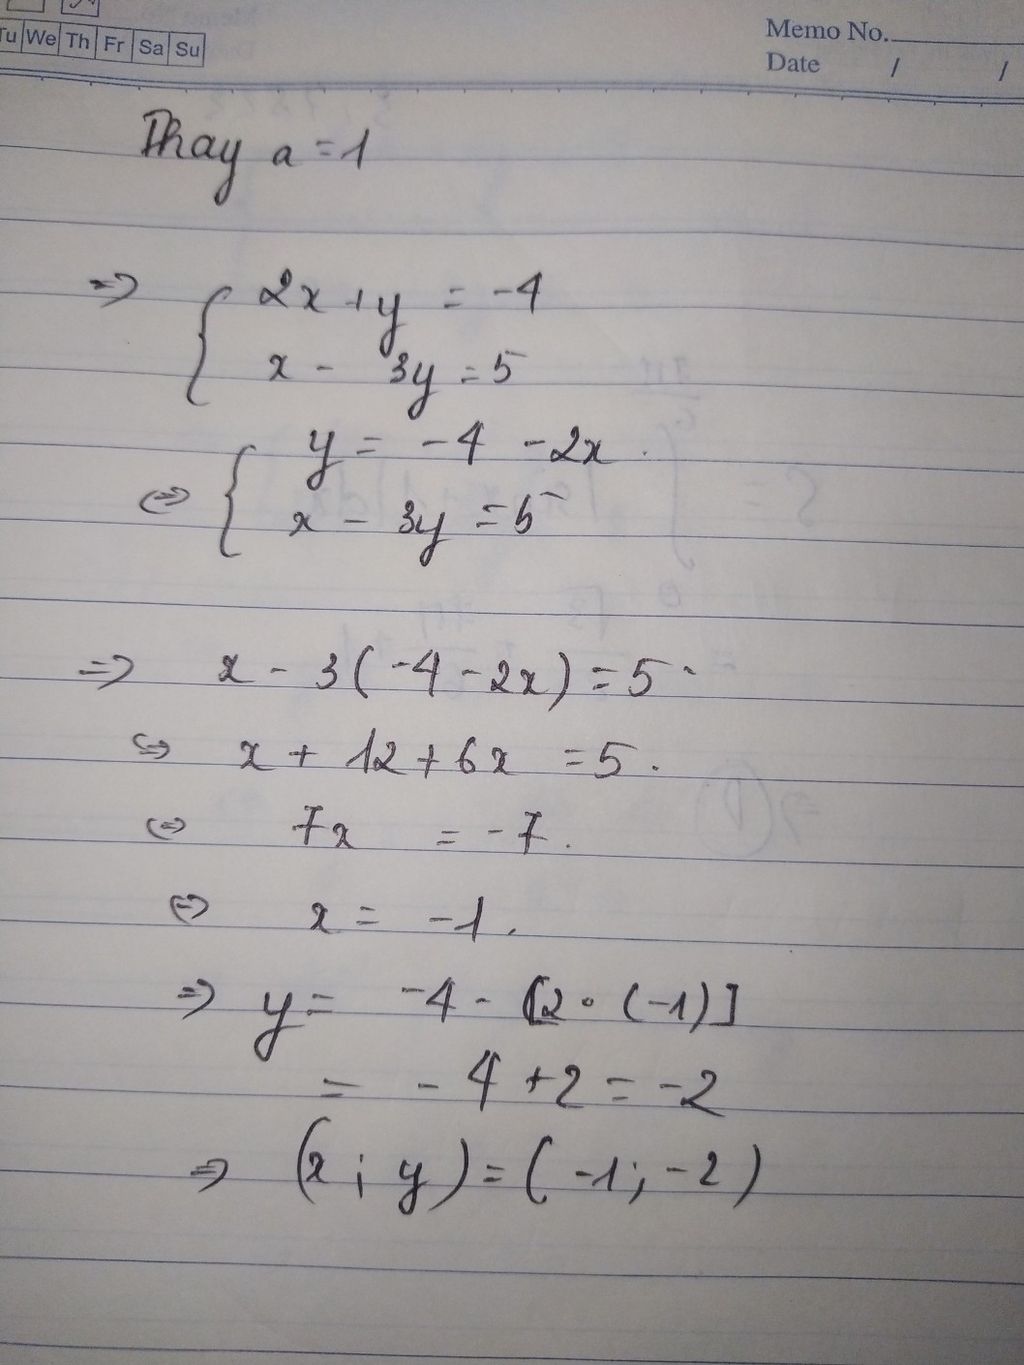 Tu We Th Fr Sa Su
Memo No.
Date / /
Thay a = 1
=> { 2x + y = -4
x - 3y = 5
<=> { y = -4 - 2x .
x - 3y = 5
=> x - 3( -4 - 2x ) = 5 .
<=> x + 12 + 6x = 5 .
<=> 7x = -7 .
<=> x = -1 .
=> y = -4 - [2 . (-1)]
= -4 + 2 = -2
=> (x ; y) = ( -1 ; -2 )